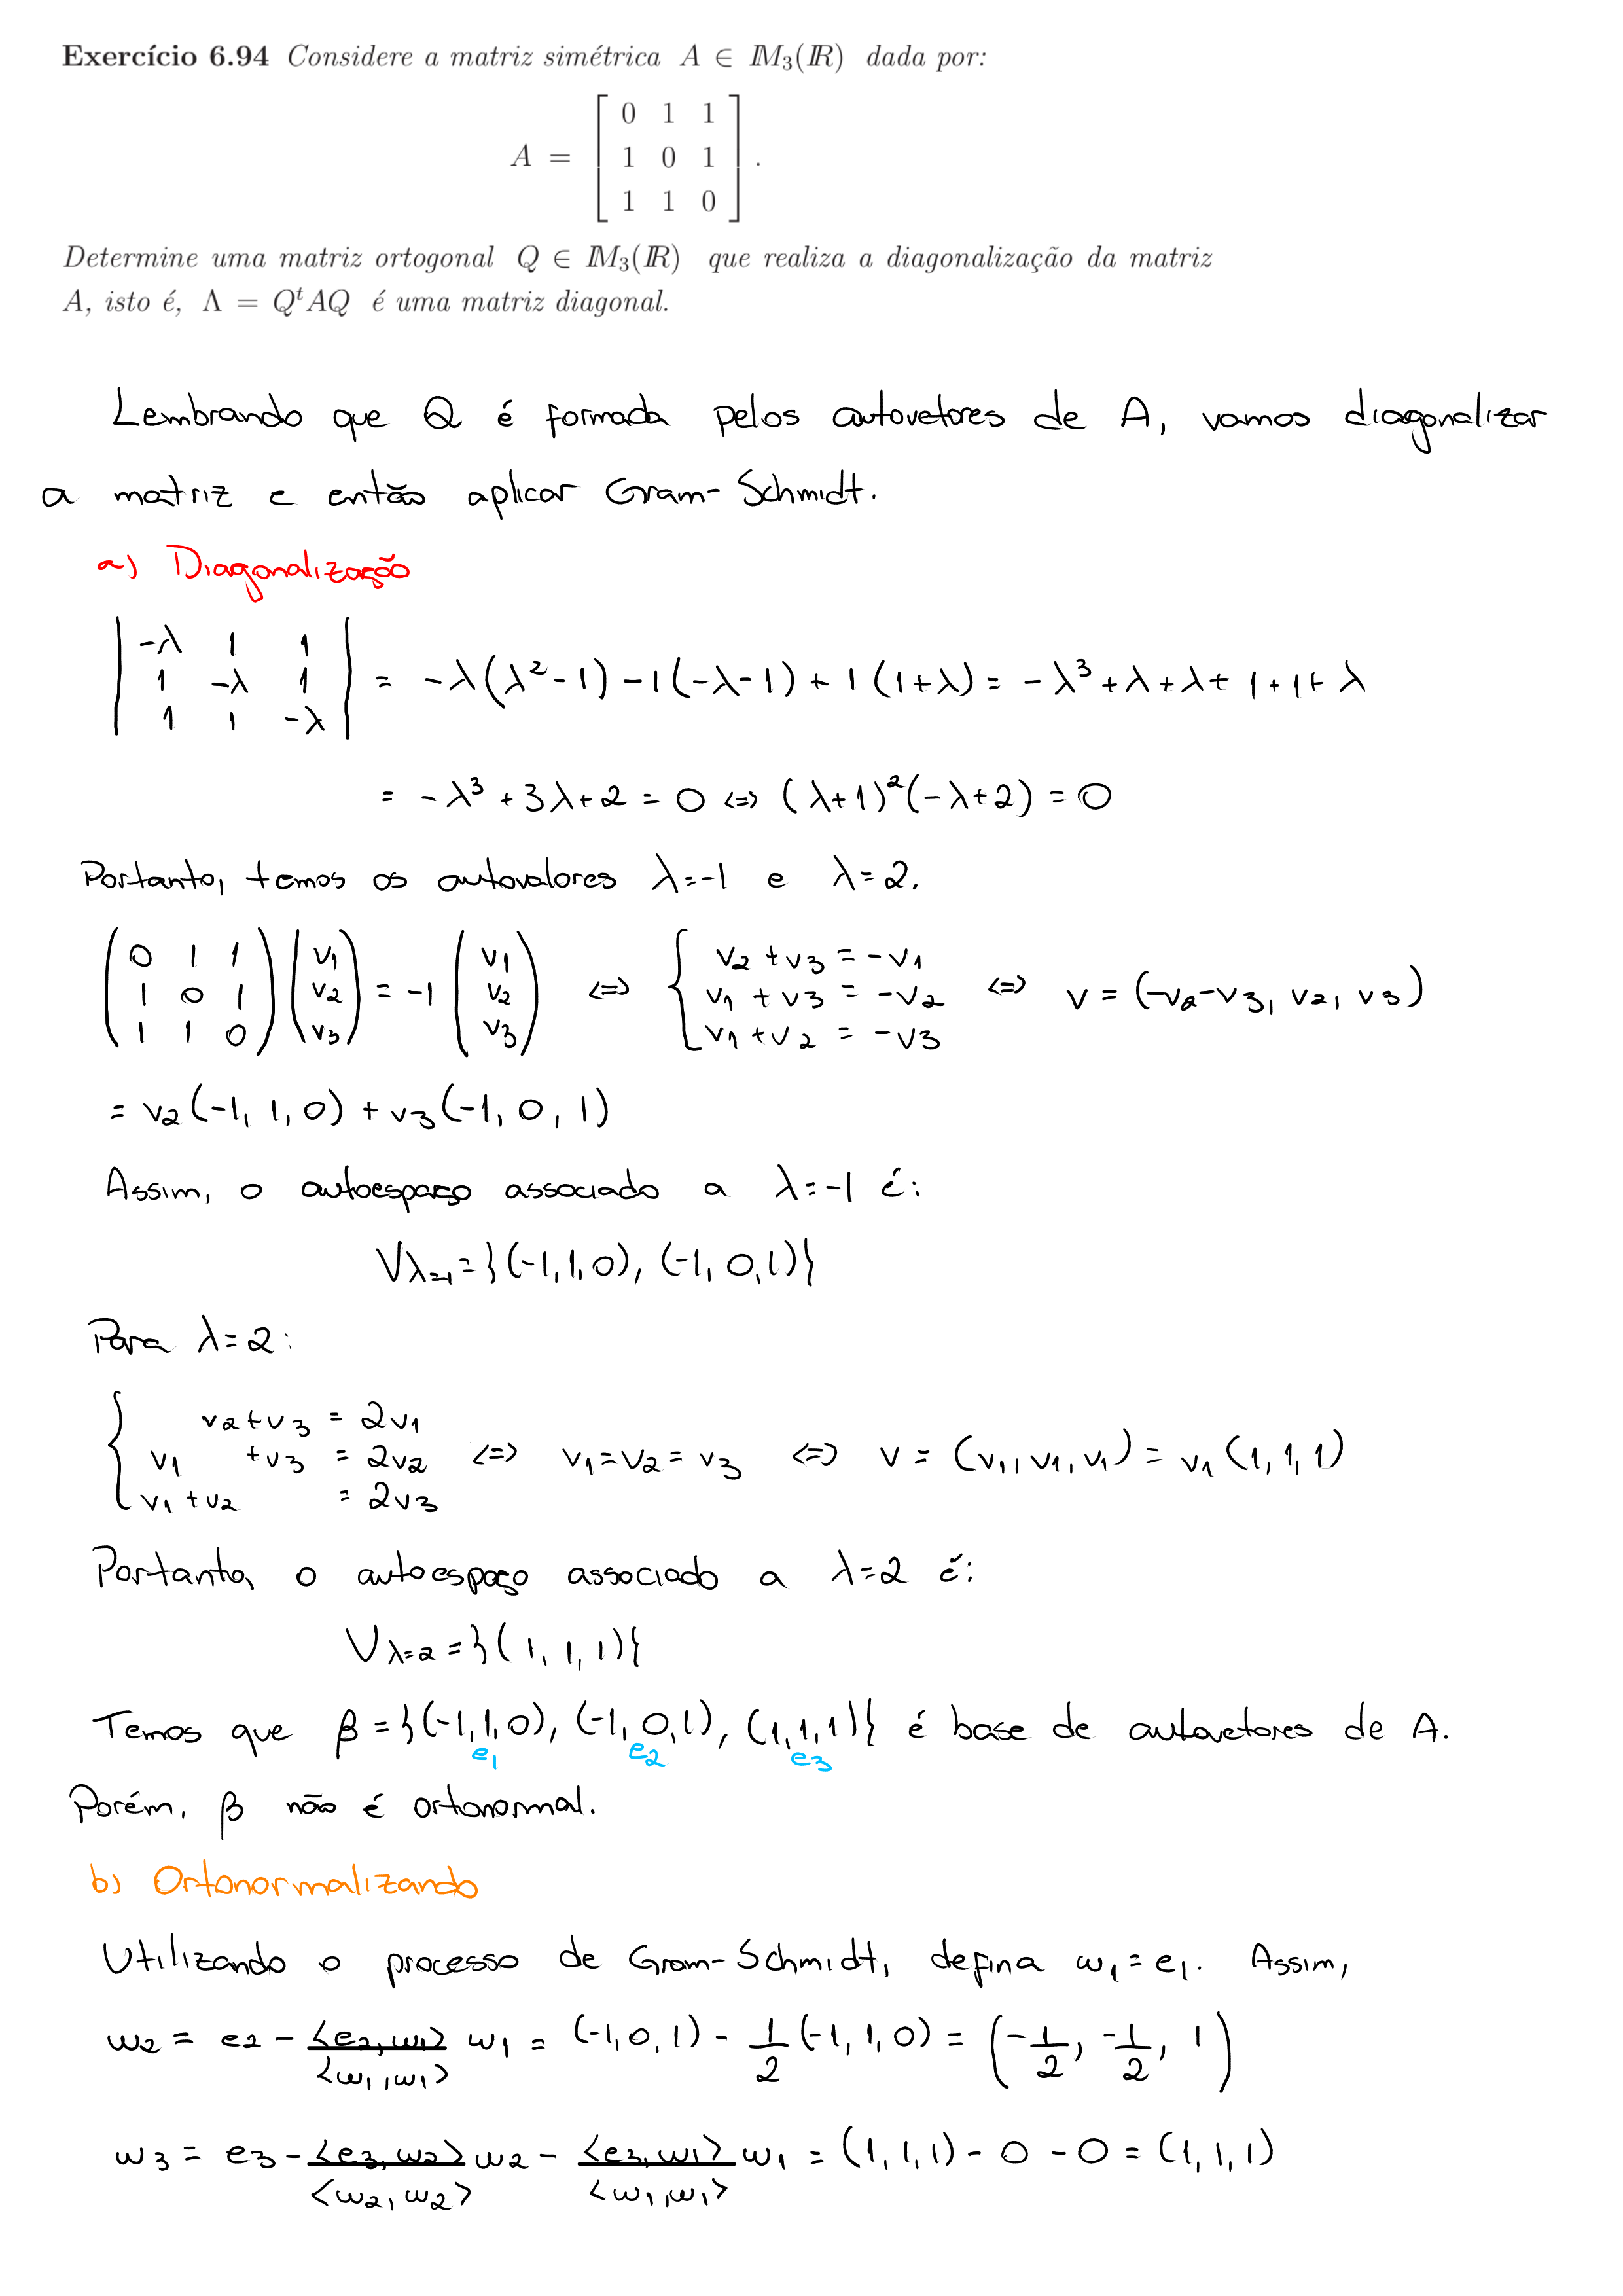 Exercício 6.94 Considere a matriz simétrica A ∈ IM₃(IR) dada por:
A = [ 0 1 1
1 0 1
1 1 0 ] .
Determine uma matriz ortogonal Q ∈ IM₃(IR) que realiza a diagonalização da matriz
A, isto é, Λ = QᵗAQ é uma matriz diagonal.
Lembrando que Q é formada pelos autovetores de A, vamos diagonalizar
a matriz e então aplicar Gram-Schmidt.
a) Diagonalização
| -λ 1 1 |
| 1 -λ 1 | = -λ(λ²-1) -1(-λ-1) + 1(1+λ) = -λ³+λ+λ+1+1+λ
| 1 1 -λ |
= -λ³+3λ+2 = 0 <=> (λ+1)²(-λ+2) = 0
Portanto, temos os autovalores λ=-1 e λ=2.
( 0 1 1 ) ( v1 ) ( v1 ) { v2 + v3 = -v1
( 1 0 1 ) ( v2 ) = -1 ( v2 ) <=> { v1 + v3 = -v2 <=> v = (-v2-v3, v2, v3)
( 1 1 0 ) ( v3 ) ( v3 ) { v1 + v2 = -v3
= v2(-1, 1, 0) + v3(-1, 0, 1)
Assim, o autoespaço associado a λ=-1 é:
Vλ=-1 = {(-1,1,0), (-1,0,1)}
Para λ=2:
{ v2+v3 = 2v1
{ v1 +v3 = 2v2 <=> v1=v2=v3 <=> v = (v1, v1, v1) = v1 (1, 1, 1)
{ v1 + v2 = 2v3
Portanto, o autoespaço associado a λ=2 é:
Vλ=2 = {(1, 1, 1)}
Temos que β = {(-1,1,0), (-1,0,1), (1,1,1)} é base de autovetores de A.
e1 e2 e3
Porém, β não é ortonormal.
b) Ortonormalizando
Utilizando o processo de Gram-Schmidt, defina w1 = e1. Assim,
w2 = e2 - <e2,w1>/<w1,w1> w1 = (-1,0,1) - 1/2 (-1,1,0) = (-1/2, -1/2, 1)
w3 = e3 - <e3,w2>/<w2,w2> w2 - <e3,w1>/<w1,w1> w1 = (1,1,1) - 0 - 0 = (1,1,1)